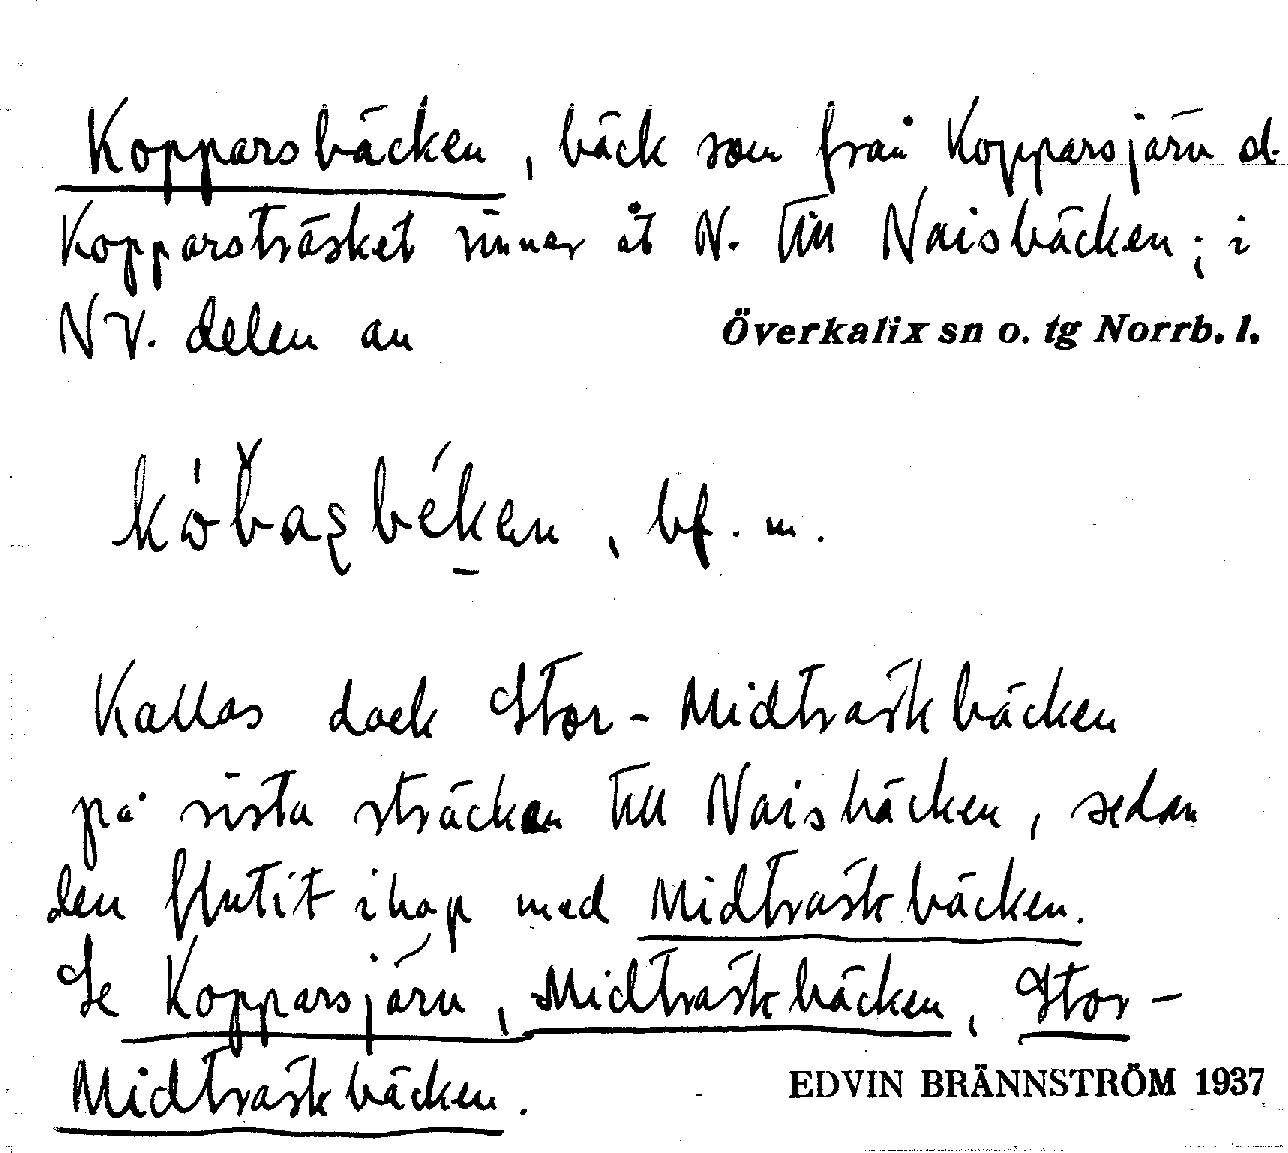 Kopparsbäcken, bäck som från Kopparsjärv d.
Kopparsträsket rinner åt N. till Naisbäcken; i
NV. delen av Överkalix sn o. tg Norrb. l.
bf. m.
Kallas dock Stor-Midträskbäcken
på sista sträckan till Naisbäcken, sedan
den flutit ihop med Midträskbäcken.
Se Kopparsjärv, Midträskbäcken, Stor-
Midträskbäcken. EDVIN BRÄNNSTRÖM 1937